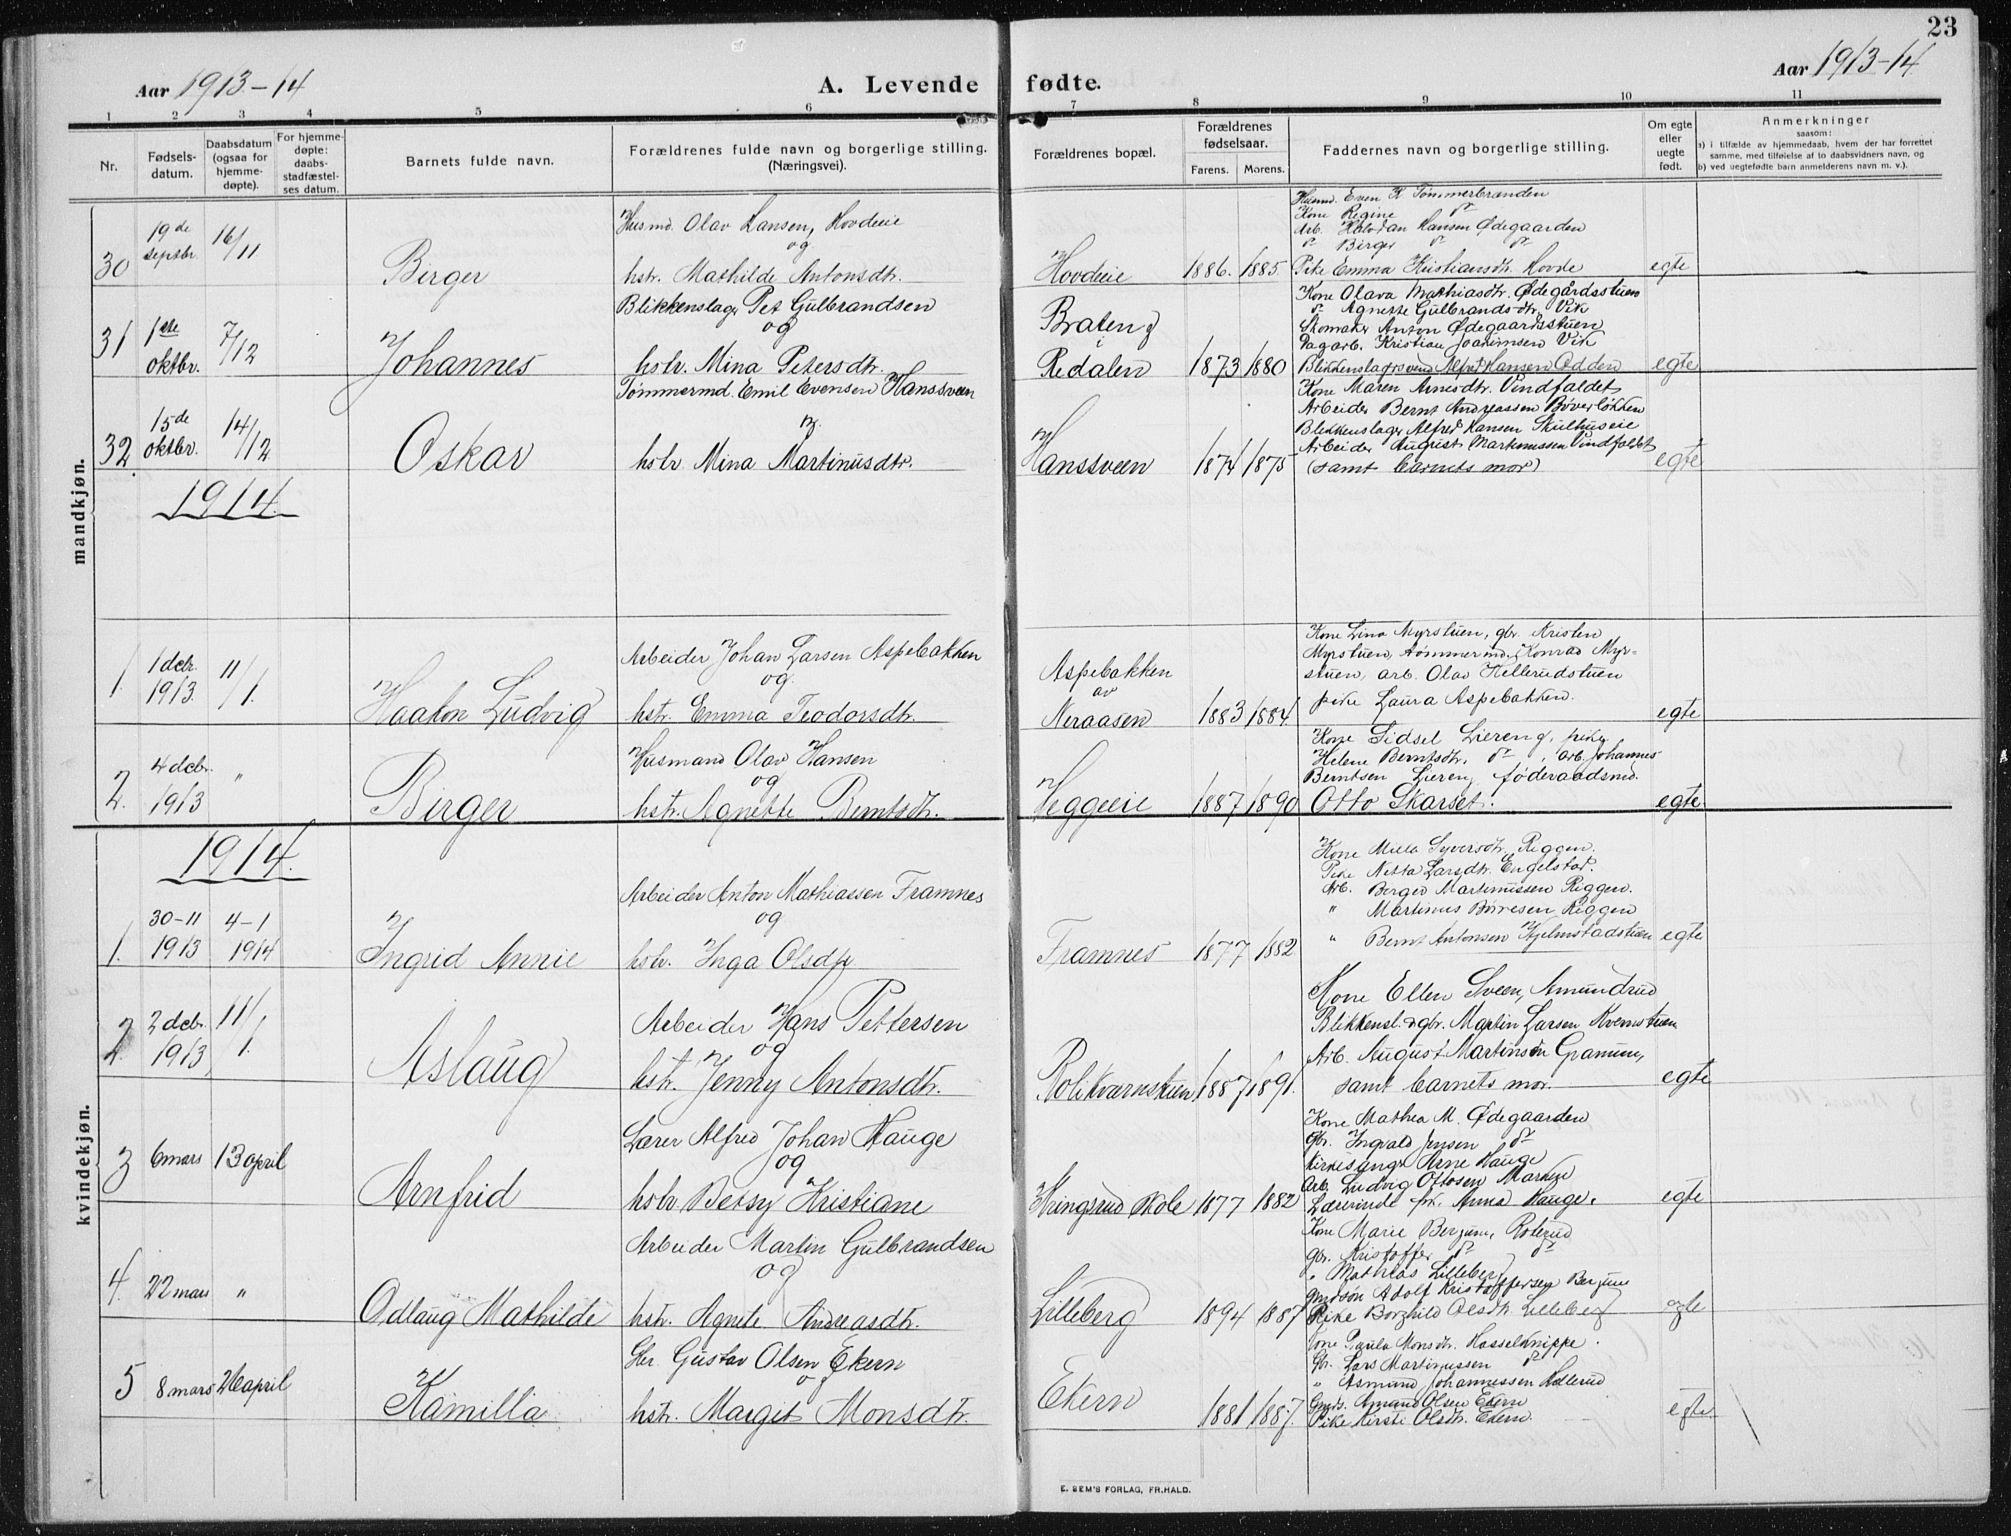 23
Aar 1913-14
A. Levende fødte.
Aar 1913-14
1 2 3 4 5 6 7 8 9 10 11
Nr.
Fødsels-
datum.
Daabsdatum
(ogsaa for
hjemme-
døpte).
For hjemme-
døpte:
daabs-
stadfæstel-
ses datum.
Barnets fulde navn.
Forældrenes fulde navn og borgerlige stilling.
(Næringsvei).
Forældrenes bopæl.
Forældrenes
fødselsaar.
Farens. Morens.
Faddernes navn og borgerlige stilling.
Om egte
eller
uegte
født.
Anmerkninger
saasom:
a) i tilfælde av hjemmedaab, hvem der har forrettet
samme, med tilføielse af to daabsvidners navn, og
b) ved uegtefødte barn anmelderens navn m. v.).
mandkjøn.
30
19de
septbr.
16/11
Birger
Husmd. Olav Hansen, Hovdeie
og
hstr. Mathilde Antonsdtr.
Hovdeie
1886. 1885.
Husmd. Even K Tømmerbranden
Kone Regine do
Arb. Halvdan Hansen Ødegaarden
do Birger do do
Pike Emma Kristiansdtr. Hovde
egte
31
1ste
oktbr.
7/12
Johannes
Blikkenslager Pet Gulbrandsen
og
hstr. Mina Petersdtr.
Braten
i
Redalen
1873 1880
Kone Olava Mathiasdtr. Ødegårdsstuen
do Agnette Gulbrandsdtr. Vik
Skomaker Anton Ødegaardsstuen
Dagarb. Kristian Joakimsen Vik
Blikkenslagersvend Alfred Hansen Odden
egte
32
15de
oktbr.
14/12
Oskar
Tømmermd. Emil Evensen Hanssveen
og
hstr. Mina Martinusdtr.
Hanssveen
1874 1875
Kone Maren Arnesdtr. Vindfaldet
Arbeider Bernt Andreassen Bøverløkken
Blekkenslager Alfred Hansen Skulhuseie
Arbeider August Markusen Vindfaldet
(samt barnets mor)
egte
1914.
1.
1 dcbr.
1913.
11/1.
Haakon Ludvig
Arbeider Johan Larsen Aspebakken
og
hstr. Emma Teodorsdtr.
Aspebakken
av
Neraasen
1883 1884.
Kone Lina Myrstuen, gbr. Kristen
Myrstuen, tømmermd. Konrad Myr-
stuen, arb. Olav Hellerudstuen
pike Laura Aspebakken.
egte
2.
4 dcbr.
1913
"
Birger
Husmand Olav Hansen
og
hstr. Agnette Berntsdtr.
Veggeeie
1887 1890
Kone Sidsel Liereng, pike
Helene Berntsdtr. do, arb. Johannes
Berntsen Liereng føderaadsmd.
Otto Skarset.
egte
kvindekjøn.
1914.
1.
30-11
1913
4-1
1914
Ingrid Annie
Arbeider Anton Mathiassen Framnes
og
hstr. Inga Olsdtr
Framnes
1877 1882
Kone Milla Syversdtr. Riggen.
Pike Netta Larsdtr. Engelstad.
Arb. Berger Martinussen Riggen.
" Martinus Børresen Riggen
" Bernt Antonsen Hjelmstadstuen
egte
2.
2 dcbr.
1913
11/1.
Aslaug
Arbeider Hans Pettersen
og
hstr. Jenny Antonsdtr.
Rolikvarnstuen
1887 1891.
Kone Ellen Sveen, Amundrud
Blikkensl. & gbr. Martin Larsen Kvernstuen
Arb. August Martinsen Granum,
samt barnets mor.
egte
3
6 mars
13 april
Arnfrid
Lærer Alfred Johan Hauge
og
hstr. Betsy Kristiane
Hringsrud skole
1877 1882
Kone Mathea M. Ødegaarden
Gbr. Ingvald Jensen do
Kirkesanger Arne Hauge
Arb. Ludvig Ottosen Marken
Lærerinde frk. Anna Hauge.
egte
4.
22 mars
"
Odlaug Mathilde
Arbeider Martin Gulbrandsen
og
hstr. Agnete Andreasdtr.
Lilleberg
1894 1887
Kone Marie Bergum, Roterud
Gbr. Kristoffer do do
" Mathias Lilleberg
Grdsøn Adolf Kristoffersen Bergum
Pike Borghild Olsdtr. Lilleberg
egte
5
8 mars
26 april
Kamilla
Gbr. Gustav Olsen Ekern
og
hstr. Margit Monsdtr.
Ekern
1881 1887.
Kone Paula Monsdtr. Hasselknippe.
Gbr. Lars Martinussen do
" Asmund Johannessen Hellerud.
Grds. Amund Olsen Ekern
Pike Kirsti Olsdtr. Ekern.
egte.
E. SEM'S FORLAG, FR.HALD.